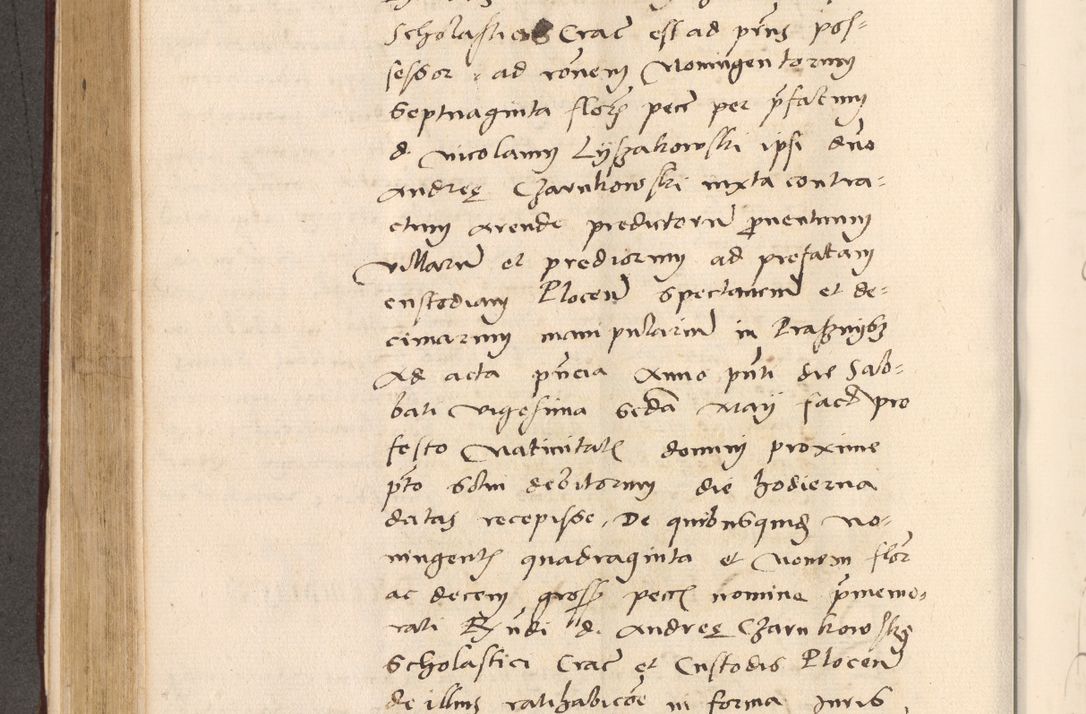 Scholasticus Crac est ad prns pos-
sessor, ad ronem Noningentorum
Septuaginta flor pec per pfatum
d. Nicolaum Lyszakowski ipsi dno
Andreę Czarnkowski iuxta contra-
ctum arende predictorum proventuum
villarum et prediorum ad prefatam
custodiam Plocen spectancium et de-
cimarum manipularium in Prasznysz
Ad acta pncia Anno pnti die Sab-
bati vigesima secda Maij fact pro
festo Nativitatis domini proxime
pto solvi debitorum die hodierna
datas recepisse. De quibusquidem No-
ningentis quadraginta et Novem flor
ac decem gross pecc nomine pmemo-
rati Rndi d. Andreę Czarnkowski
Scholastici Crac et Custodis Plocen
de illius ratihabicoe in forma Iuris